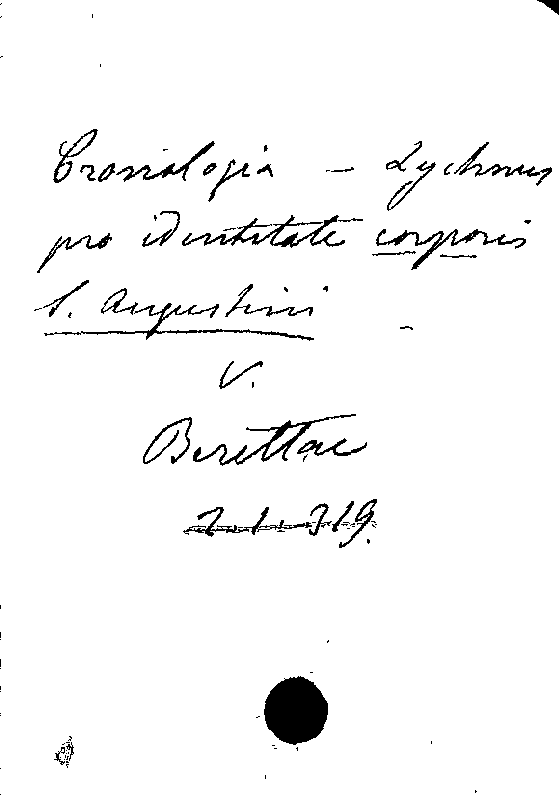 Cronologia – Lychnus
pro identitate corporis
S. Augustini –
V.
Berettae
2.1.319.